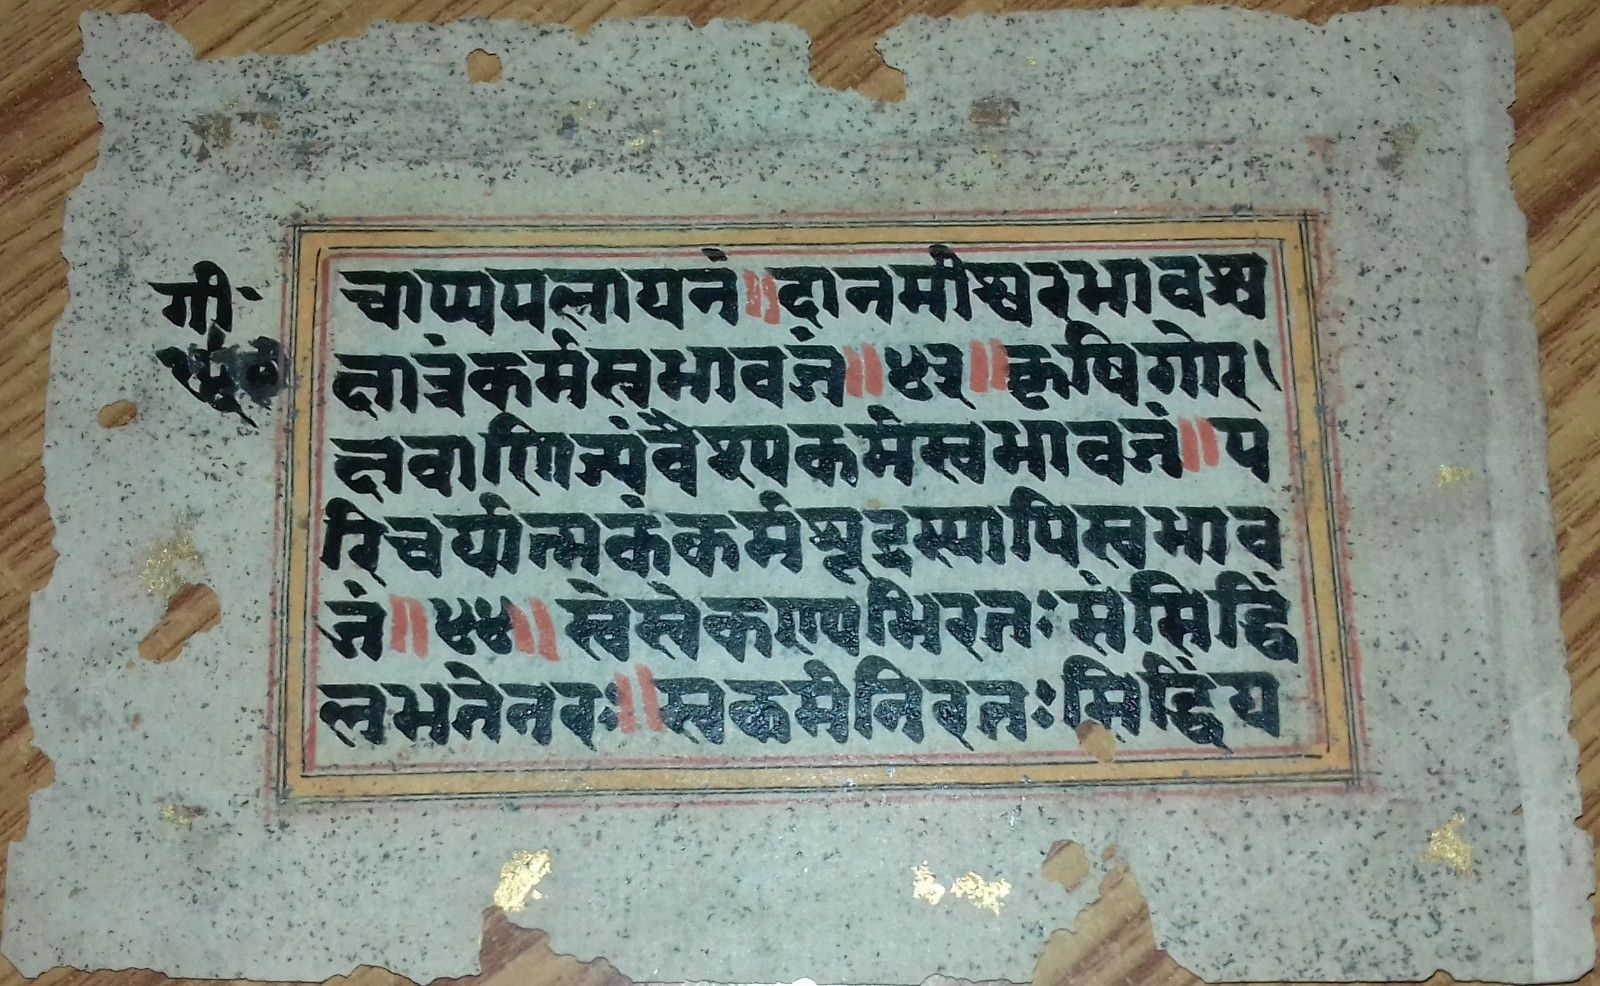 गी॰
चाप्यपलायनं॥दानमीश्वरभावश्च
क्षात्रंकर्मस्वभावजं॥४३॥कृषिगोर
क्षवाणिज्यंवैश्यकर्मस्वभावजं॥प
रिचर्यात्मकंकर्मशूद्रस्यापिस्वभाव
जं॥४४॥स्वेस्वेकर्मण्यभिरतःसंसिद्धिं
लभतेनरः॥स्वकर्मनिरतःसिद्धिंय